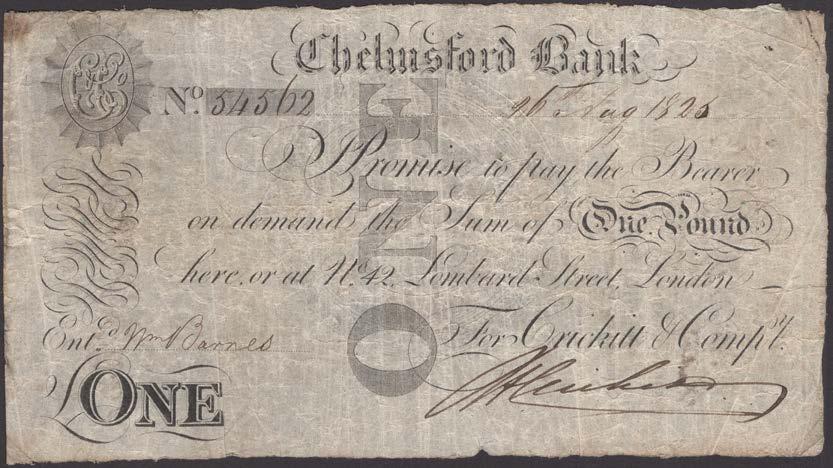 Chelmsford Bank
No. 54562 26 Aug 1825
I Promise to pay the Bearer
on demand the Sum of One Pound
here, or at No. 42, Lombard Street, London
Entd. Wm Barnes For Crickitt & Compy.
ONE
ONE